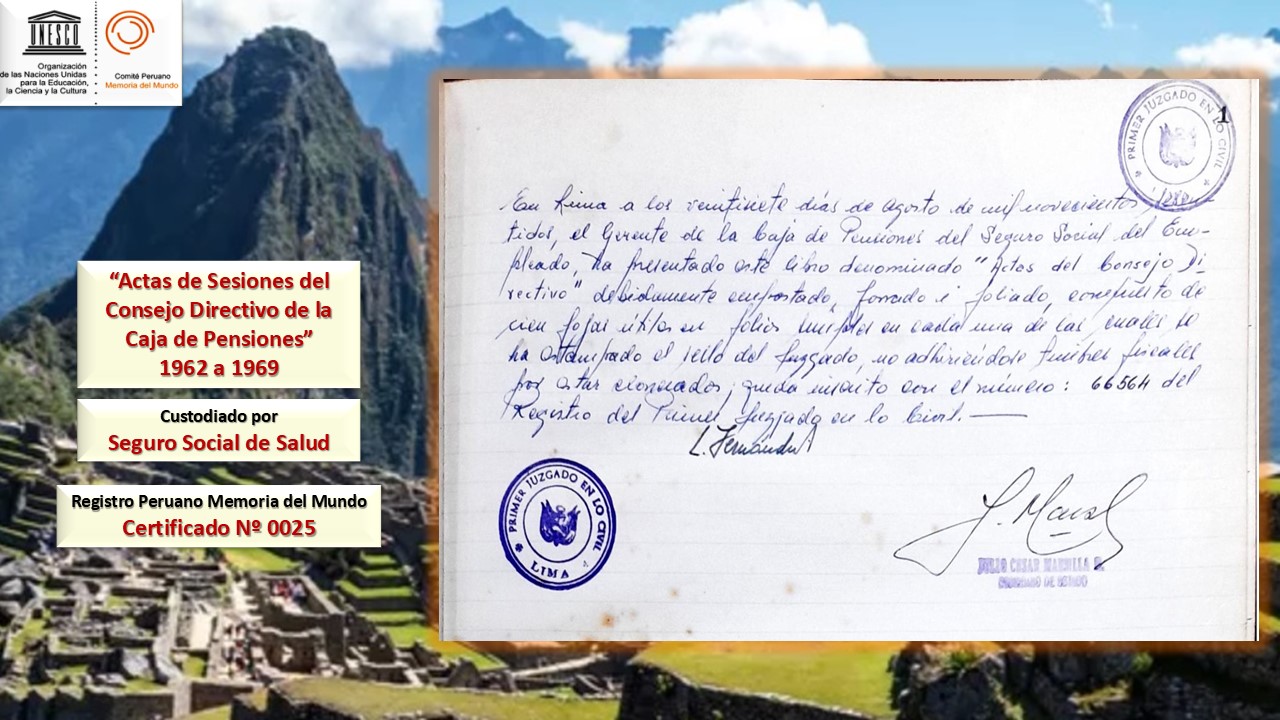 UNESCO
Organización
de las Naciones Unidas
para la Educación,
la Ciencia y la Cultura
Comité Peruano
Memoria del Mundo
“Actas de Sesiones del
Consejo Directivo de la
Caja de Pensiones”
1962 a 1969
Custodiado por
Seguro Social de Salud
Registro Peruano Memoria del Mundo
Certificado Nº 0025
PRIMER JUZGADO EN LO CIVIL
1
En Lima a los veintisiete días de agosto de mil novecientos
tidos, el Gerente de la Caja de Pensiones del Seguro Social del Em-
pleado, ha presentado este libro denominado "Actas del Consejo Di-
rectivo" debidamente empastado, forrado i foliado, compuesto de
cien fojas útiles en folios simples en cada una de las cuales se
ha estampado el sello del Juzgado, no adhiriéndose timbres fiscales
por estar exonerados; queda inscrito con el número: 66564 del
Registro del Primer Juzgado en lo Civil.
L. Fernández
PRIMER JUZGADO EN LO CIVIL
LIMA
JULIO CESAR